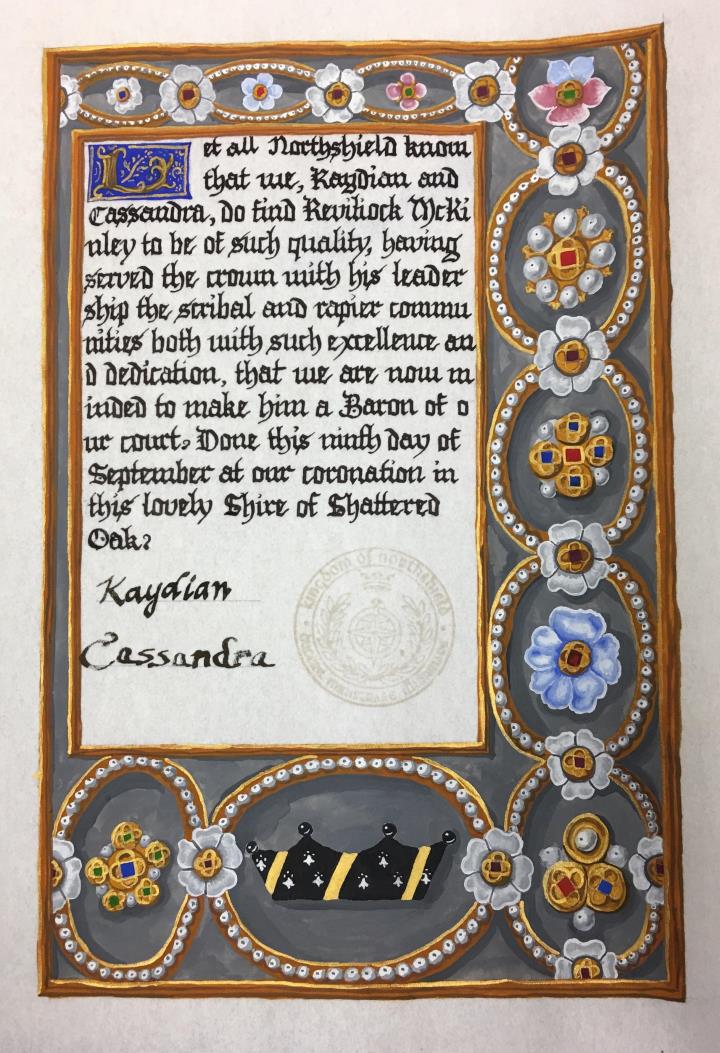 Let all Northshield know
that we, Kaydian and
Cassandra, do find Reviliock McKi
nley to be of such quality, having
served the crown with his leader
ship the scribal and rapier commu
nities both with such excellence an
d dedication, that we are now m
inded to make him a Baron of o
ur court. Done this ninth day of
September at our coronation in
this lovely Shire of Shattered
Oak.
Kaydian
Cassandra
kingdom of northshield